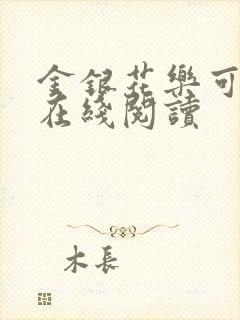 金銀花樂可
在綫閱讀
木長